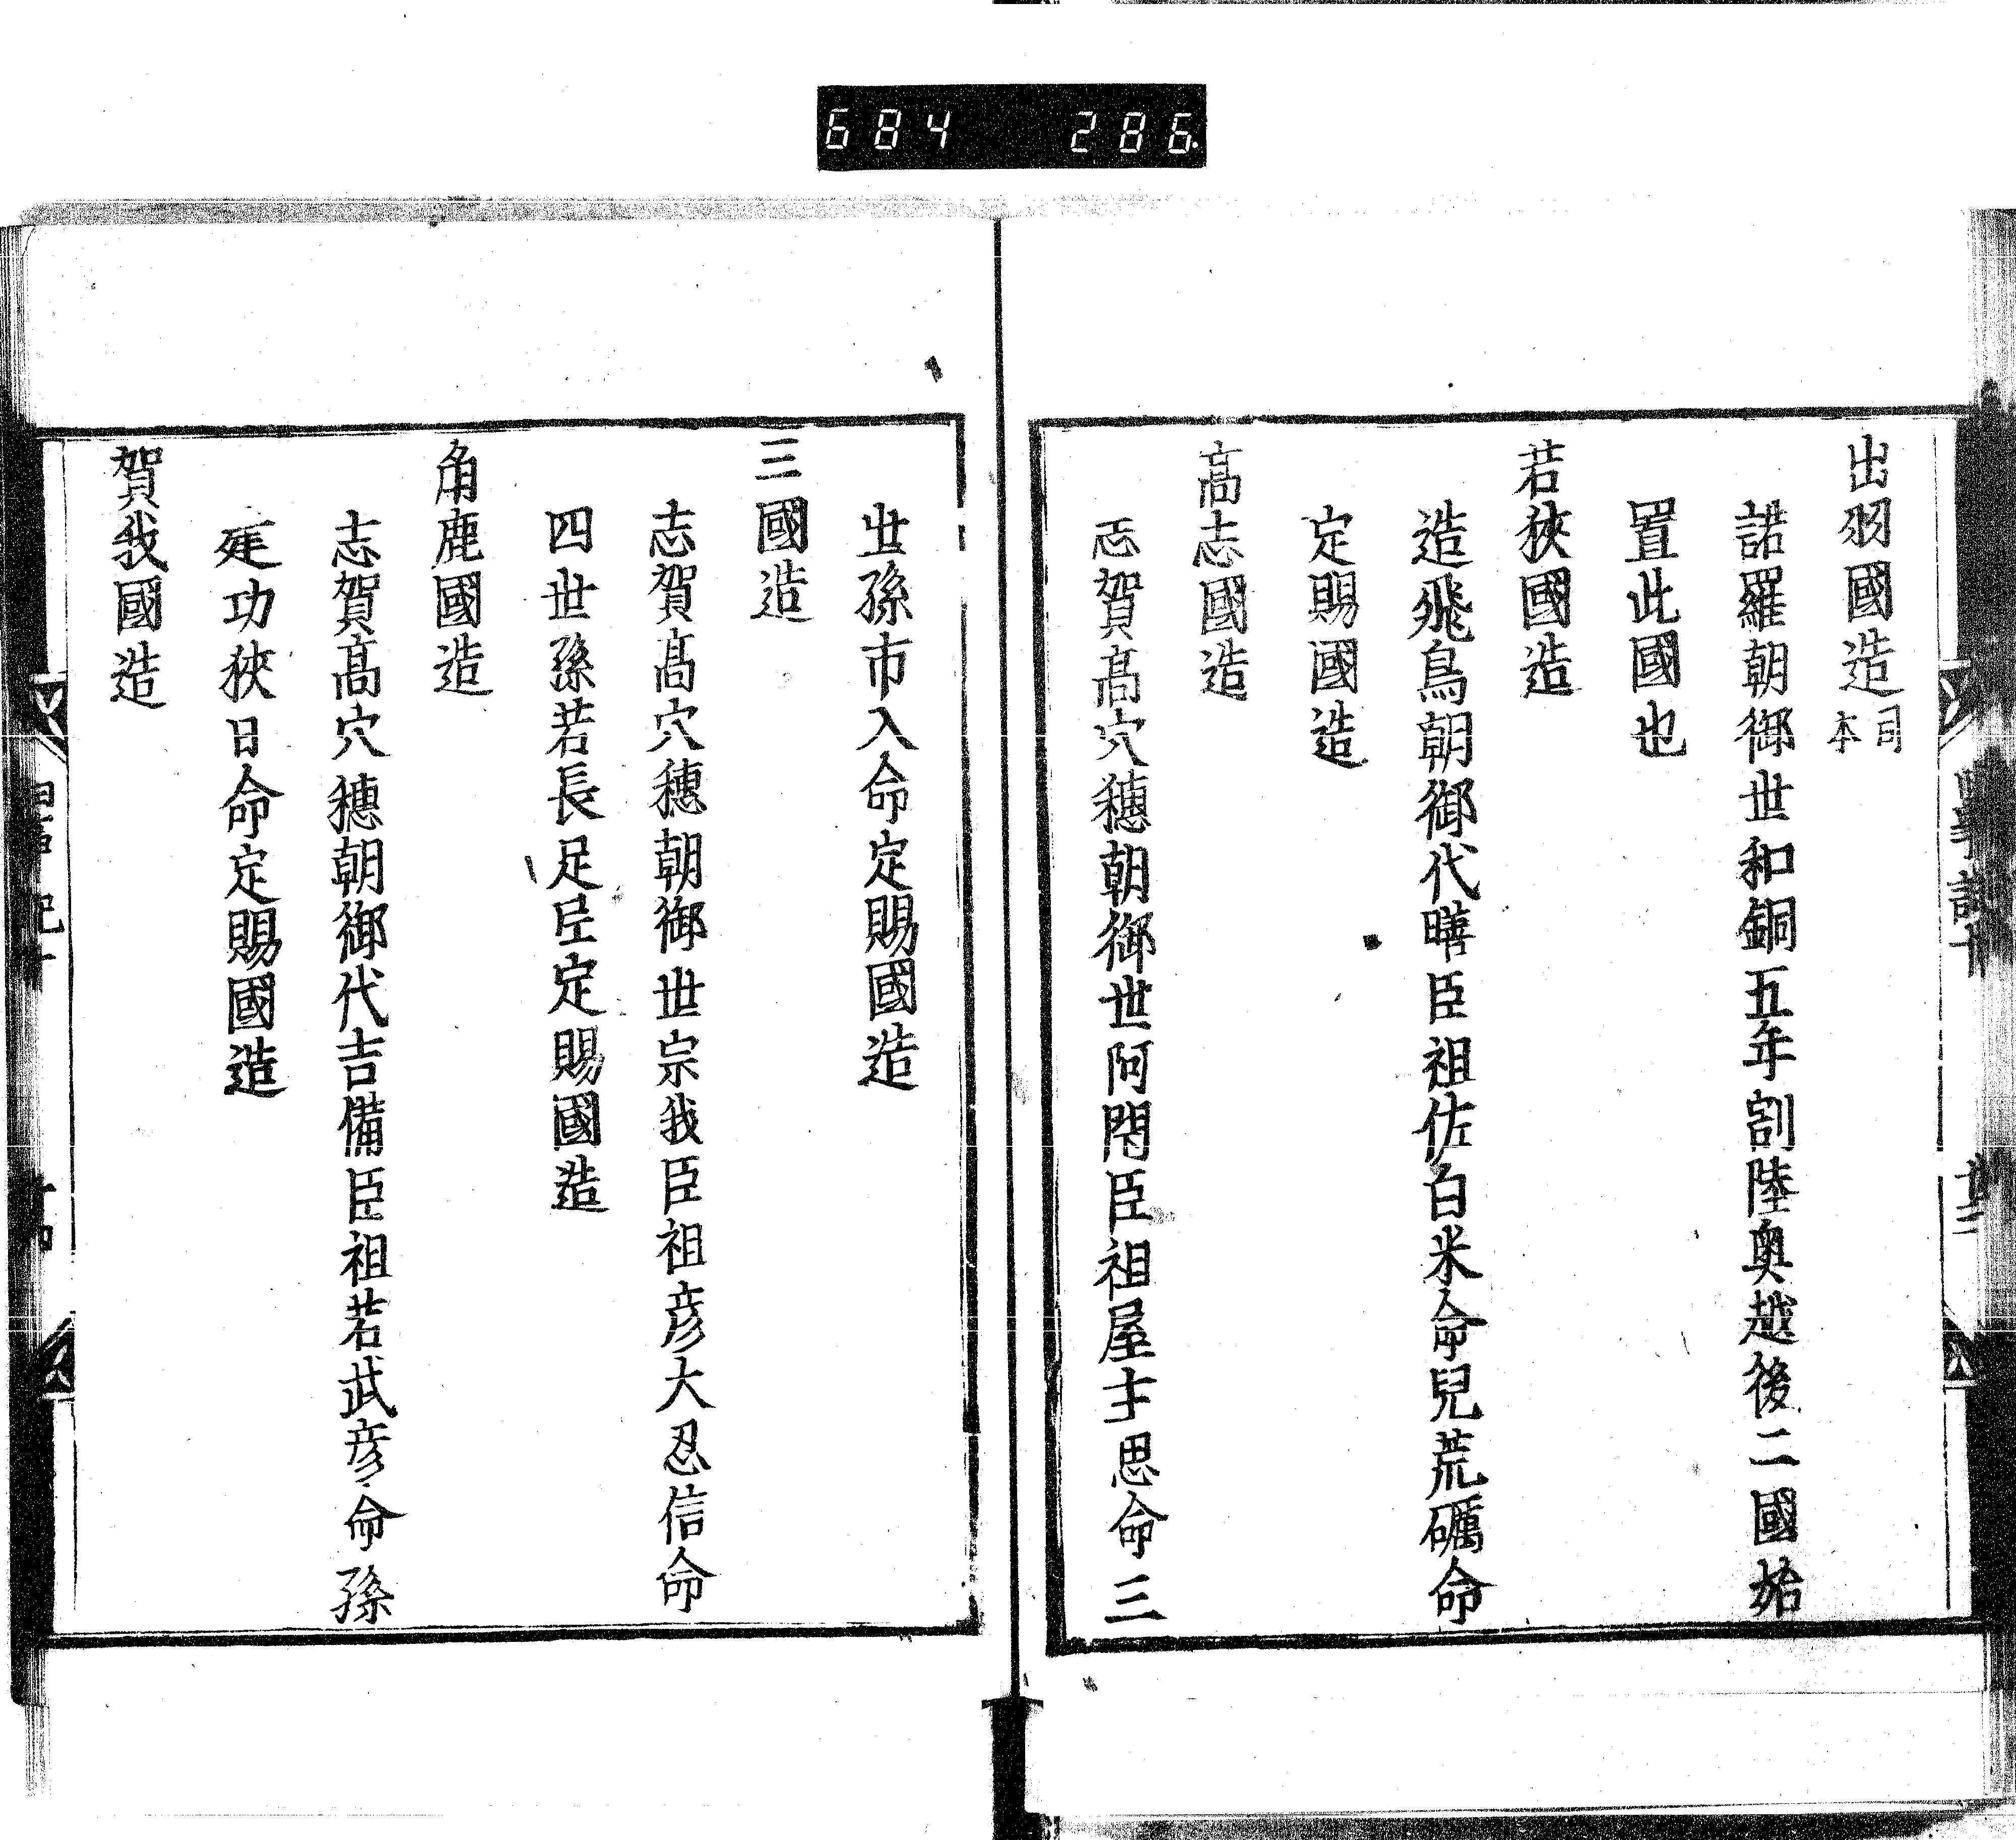 684 286
出羽國造司本
諾羅朝御世和銅五年割陸奧越後二國始
置此國也
若狹國造
造飛鳥朝御代曔臣祖佐白米命兒荒礪命
定賜國造
髙志國造
志賀髙穴穗朝御世阿閇臣祖屋主思命三
世孫市入命定賜國造
三國造
志賀髙穴穗朝御世宗我臣祖彦大忍信命
四世孫若長足𦣝定賜國造
角鹿國造
志賀髙穴穗朝御代吉備臣祖若武彦命孫
建功狹日命定賜國造
賀我國造